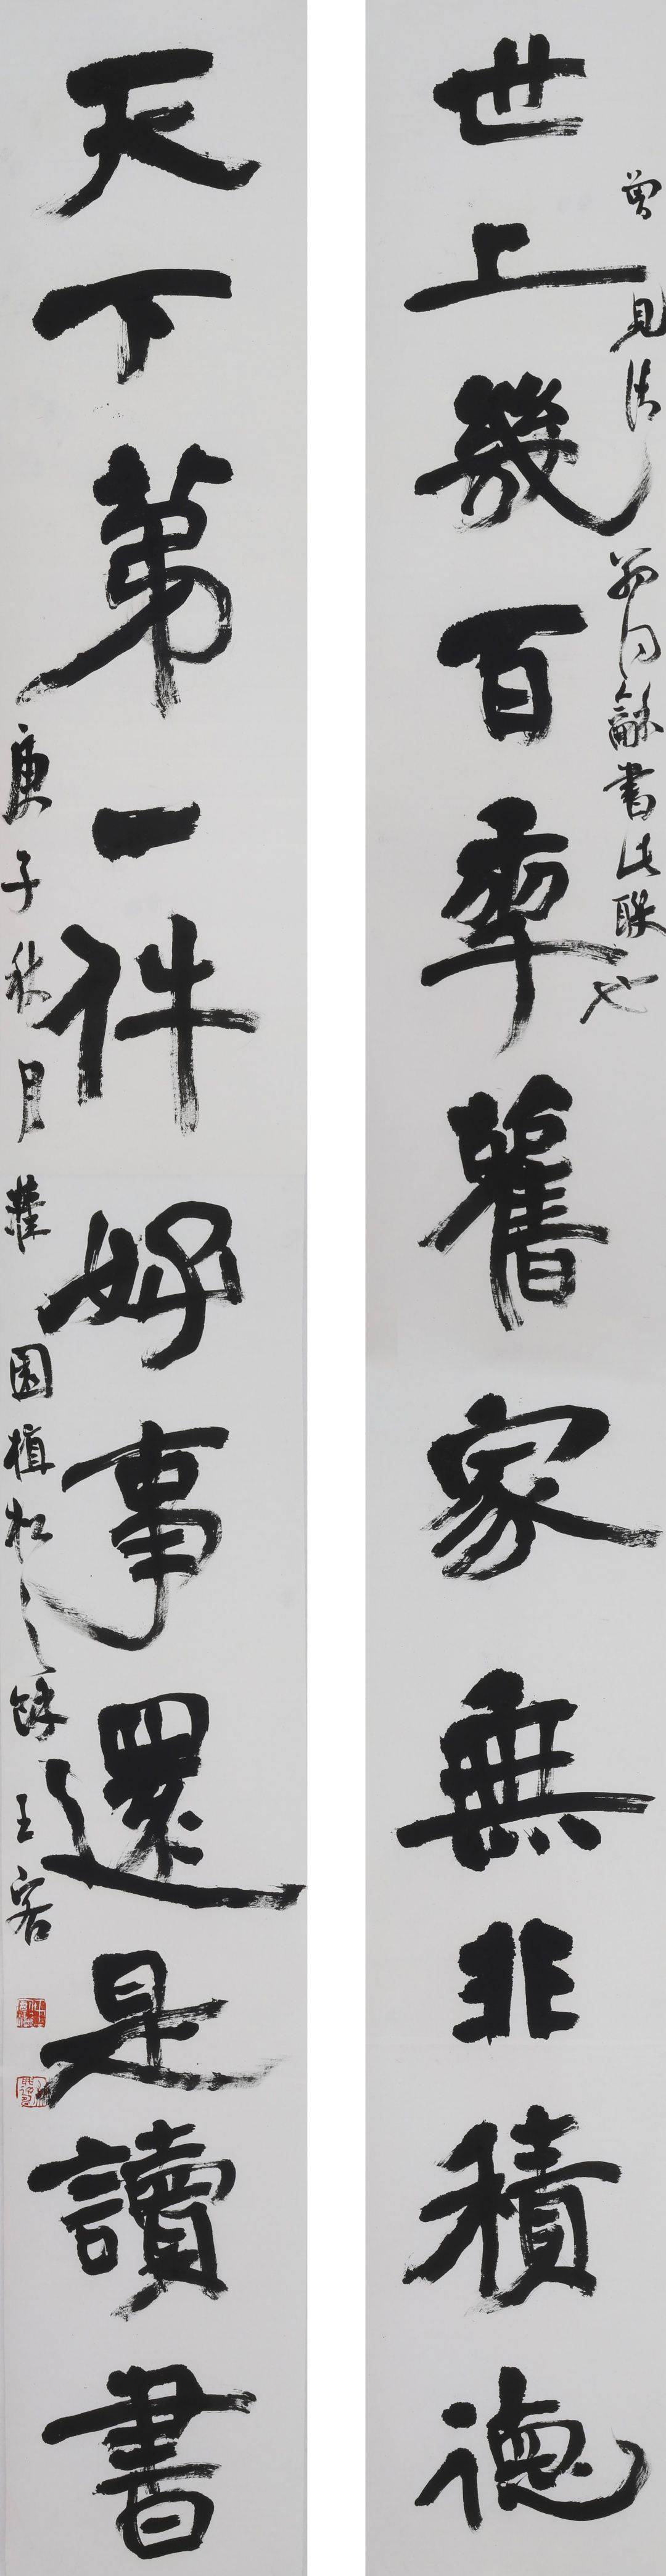 世上幾百年舊家無非積德
曾見清翁同龢書此聯也
天下第一件好事還是讀書
庚子秋月 園植松之 王客